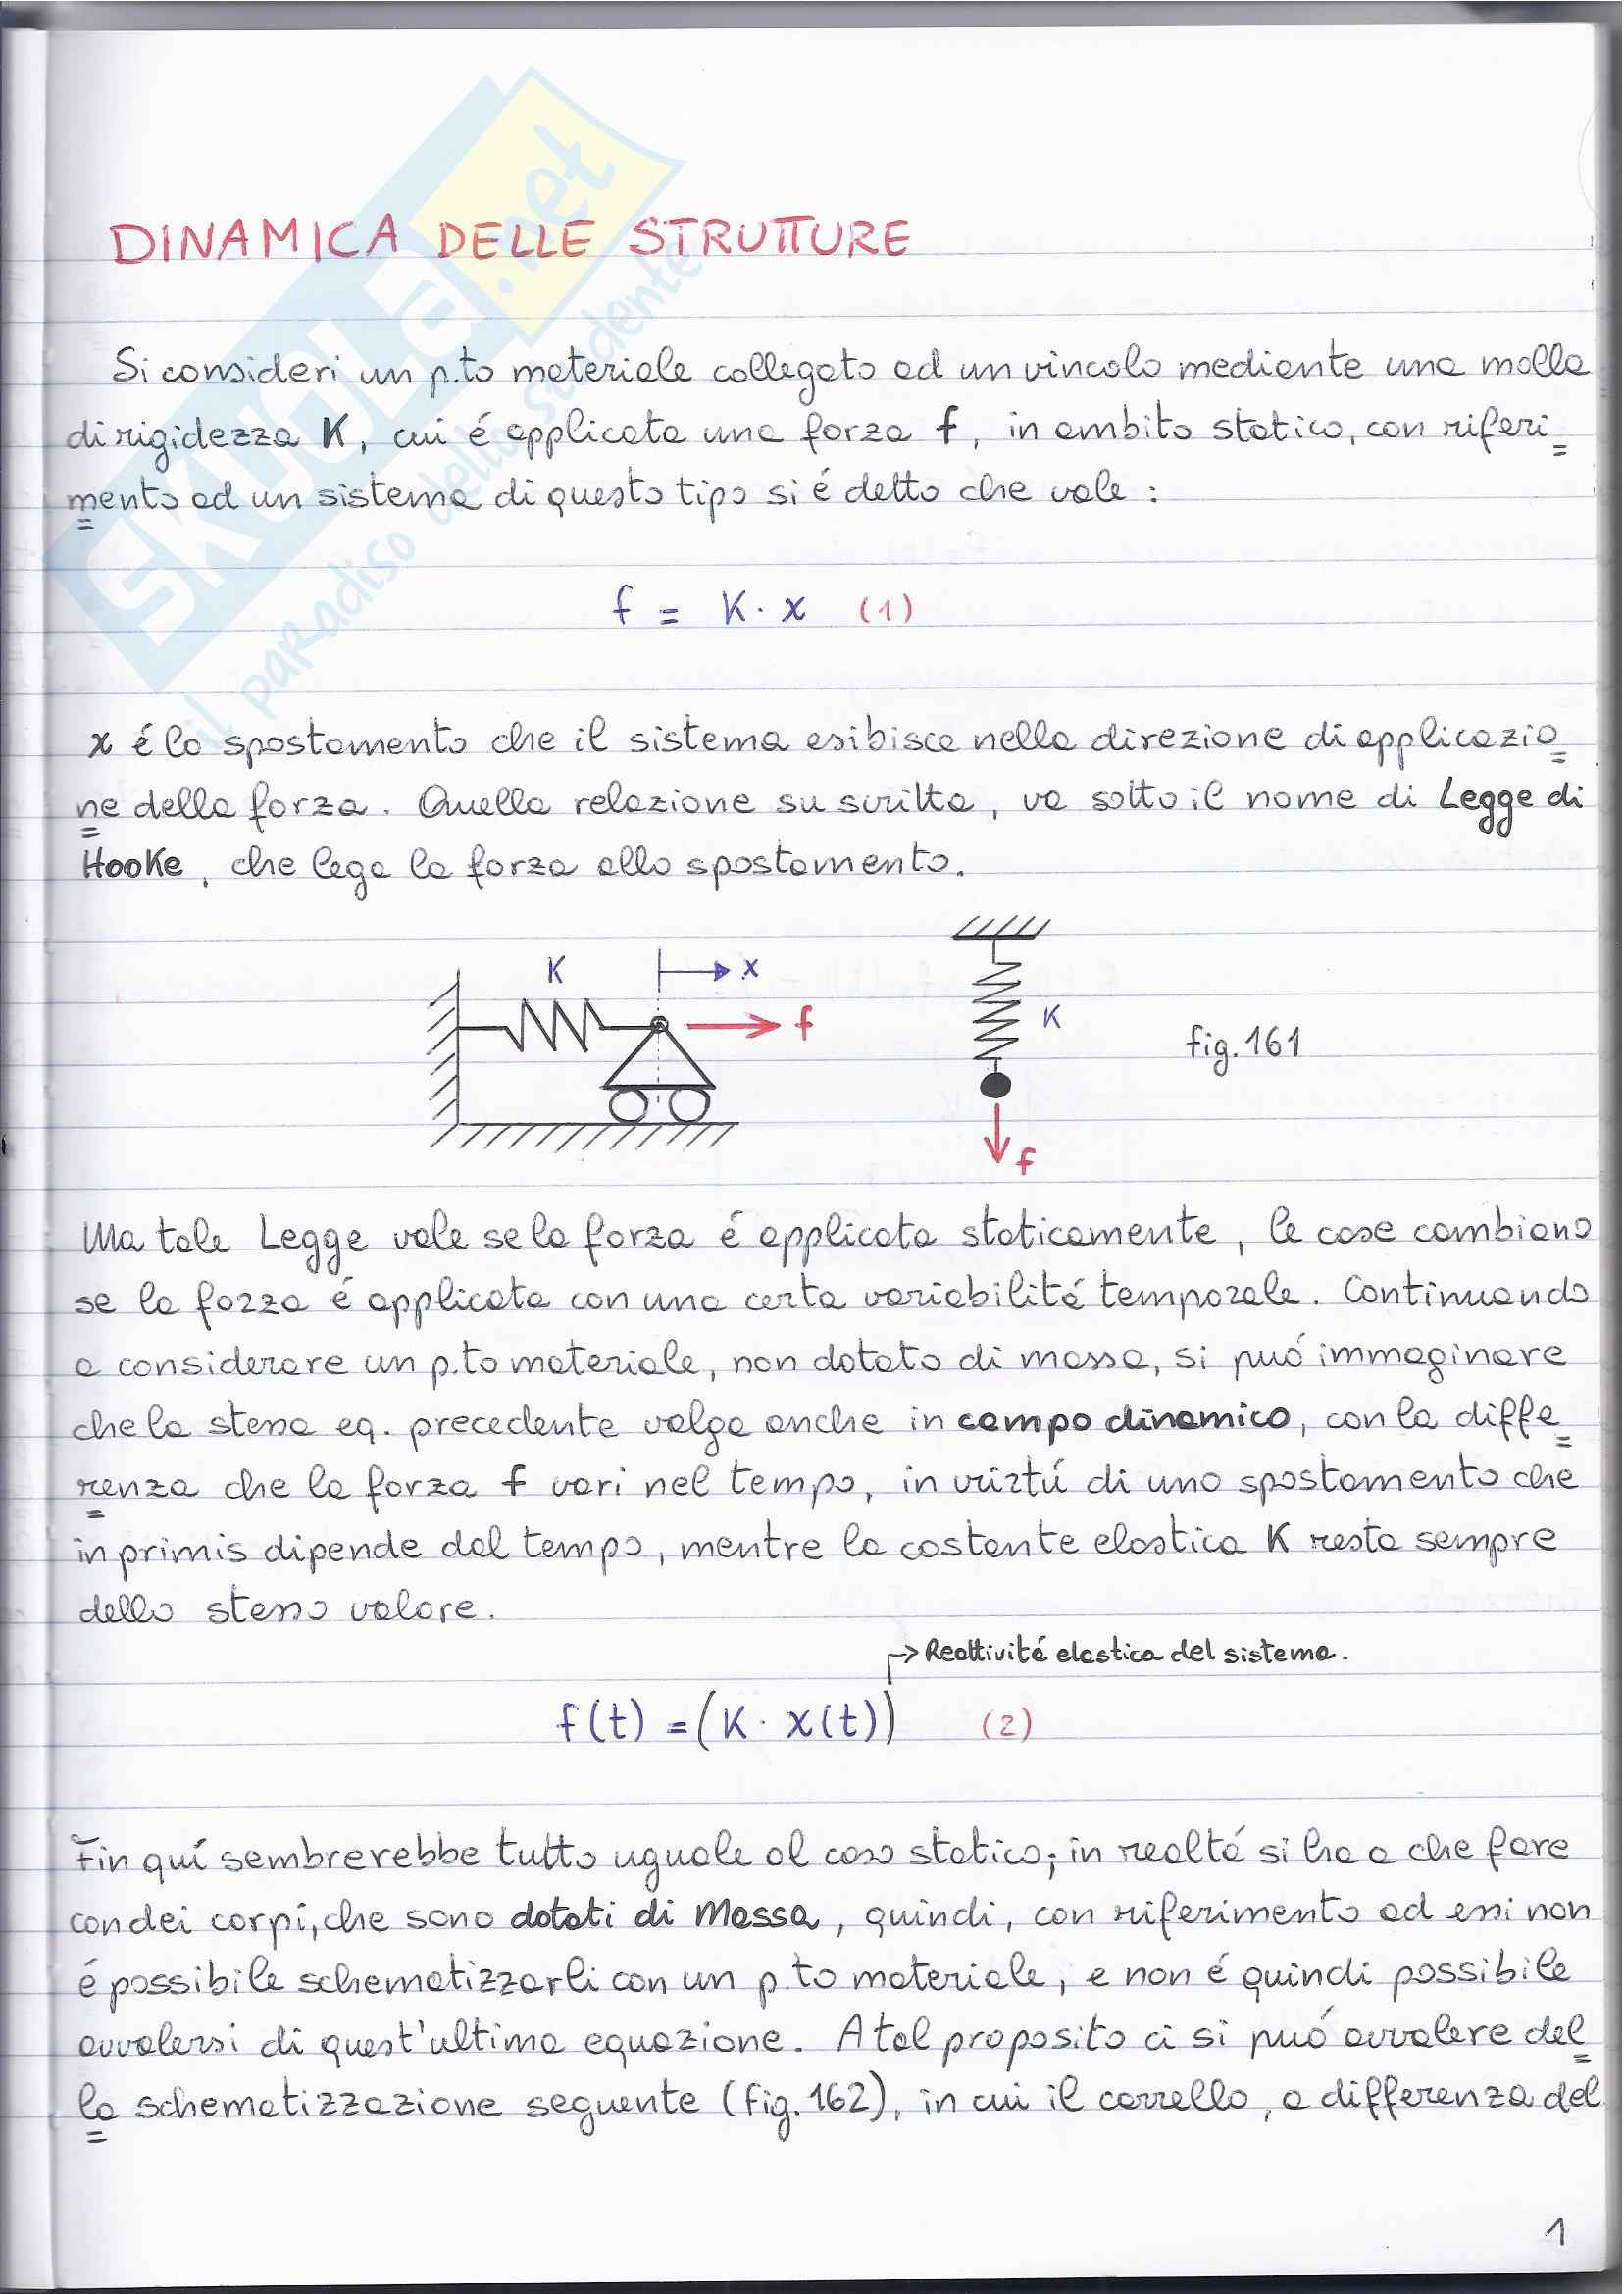 DINAMICA DELLE STRUTTURE
Si consideri un p.to materiale collegato ad un vincolo mediante una molla
di rigidezza K, cui é applicata una forza f, in ambito statico, con riferi=
mento ad un sistema di questo tipo si é detto che vale :
f = K · x (1)
x é lo spostamento che il sistema esibisce nella direzione di applicazio=
ne della forza. Quella relazione su scritta, va sotto il nome di Legge di
Hooke, che lega la forza allo spostamento.
K
x
f
K
f
fig. 161
Ma tale Legge vale se la forza é applicata staticamente, le cose cambiano
se la forza é applicata con una certa variabilitá temporale. Continuando
a considerare un p.to materiale, non dotato di massa, si puó immaginare
che la stessa eq. precedente valga anche in campo dinamico, con la diffe=
renza che la forza f vari nel tempo, in virtú di uno spostamento che
in primis dipende dal tempo, mentre la costante elastica K resta sempre
dello stesso valore.
→ Reattivitá elastica del sistema.
f(t) = (K · x(t)) (2)
Fin quí sembrerebbe tutto uguale al caso statico; in realtá si ha a che fare
con dei corpi, che sono dotati di Massa, quindi, con riferimento ad essi non
é possibile schematizzarli con un p.to materiale, e non é quindi possibile
avvalersi di quest'ultima equazione. A tal proposito ci si puó avvalere del=
la schematizzazione seguente (fig. 162), in cui il carrello, a differenza del
1
SKUOLA.net
il paradiso dello studente